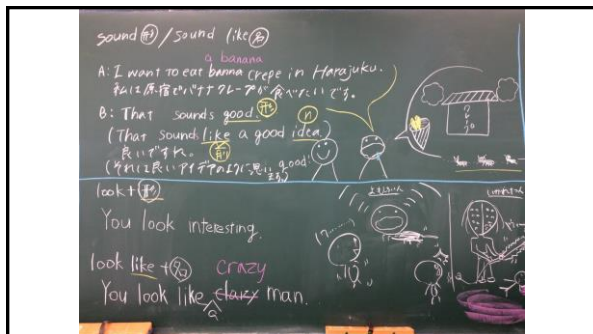 sound 形 / sound like 名
a banana
A: I want to eat banna crepe in Harajuku.
私は原宿でバナナクレープが食べたいです。
B: That sounds good. 形
n
(That sounds like a good idea.)
良いですね。
good!
クレープ
look + 形
You look interesting.
look like + 名
crazy
You look like clazy man.
a